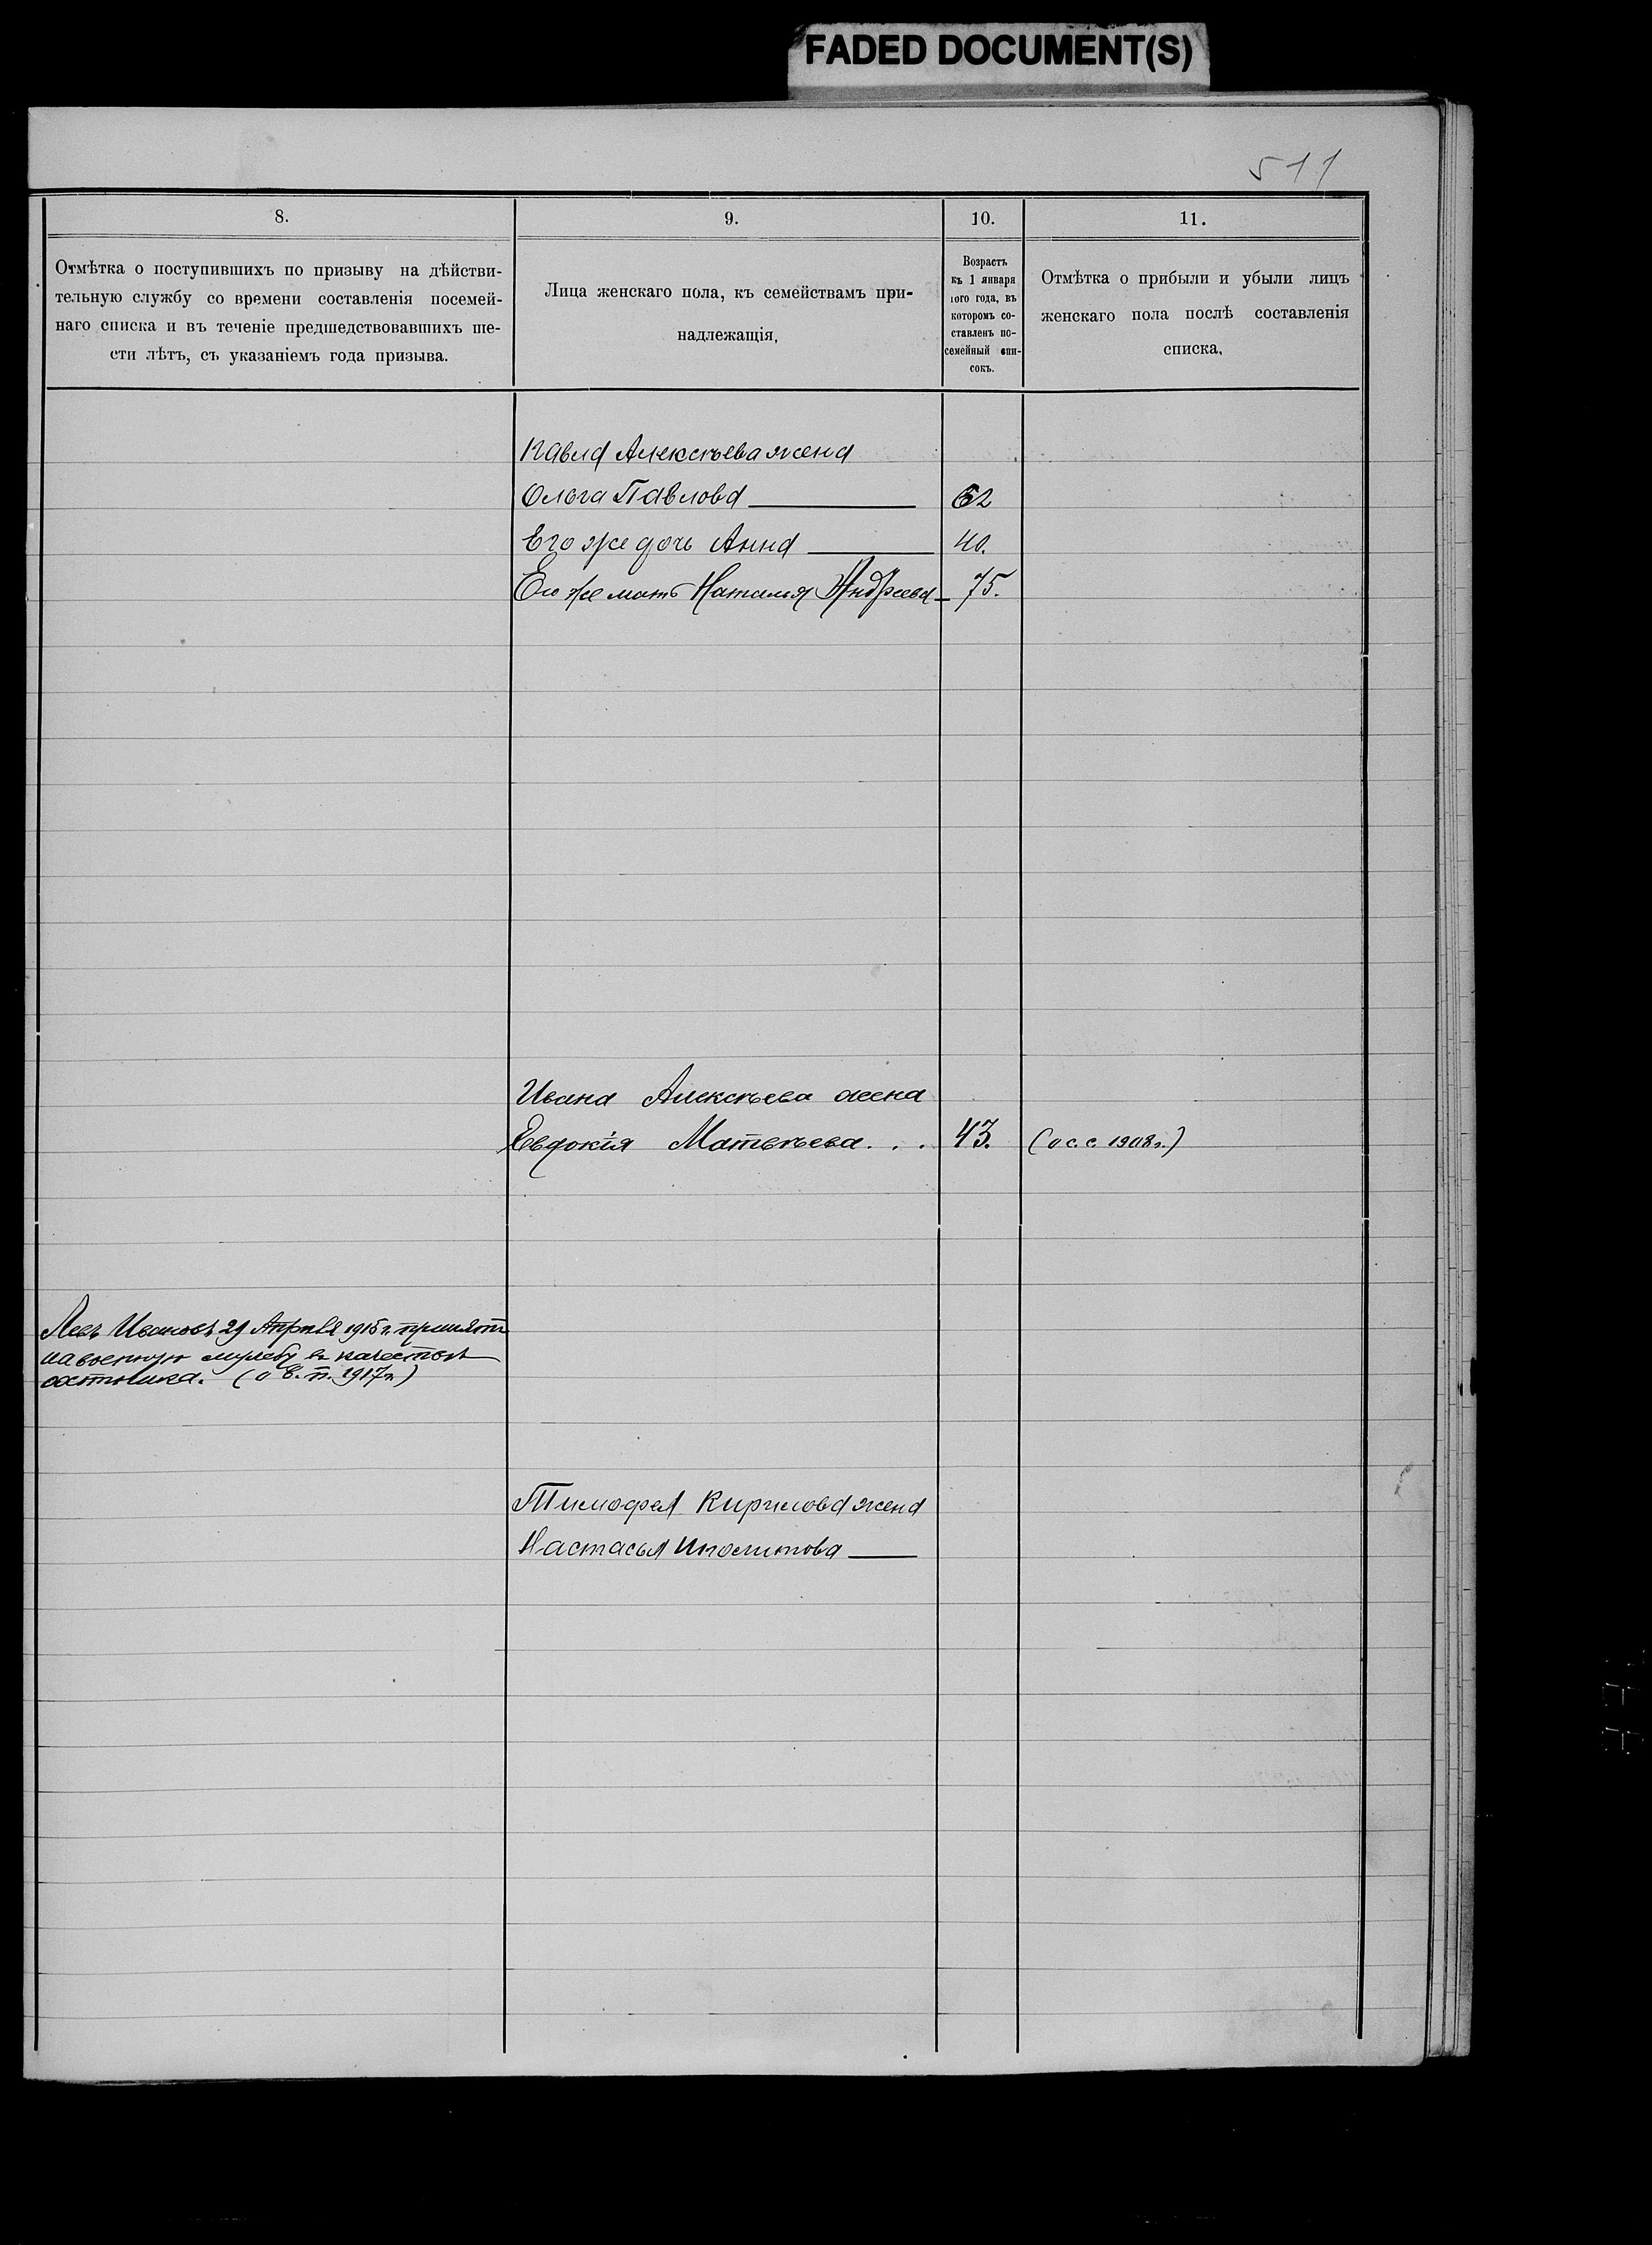 FADED DOCUMENT(S)
511
8.
9.
10.
11.
Отмѣтка о поступившихъ по призыву на дѣйстви-
тельную службу со времени составленія посемей-
наго списка и въ теченіе предшедствовавшихъ ше-
сти лѣтъ, съ указаніемъ года призыва.
Лица женскаго пола, къ семействамъ при-
надлежащія,
Возрастъ
къ 1 января
того года, въ
которомъ со-
ставленъ по-
семейный спи-
сокъ.
Отмѣтка о прибыли и убыли лицъ
женскаго пола послѣ составленія
списка,
Павла Алексѣева жена
Ольга Павлова 62
Его же дочь Анна 40.
Его же мать Наталья Андреева 75.
Ивана Алексѣева жена
Евдокія Матвѣева... 43. (о с. с. 1908 г.)
Левъ Ивановъ 29 Апрѣля 1915 г. принятъ
на военную службу въ качествѣ
(о в. п. 1917 г)
Тимофея Кирилова жена
Настасья Иполитова